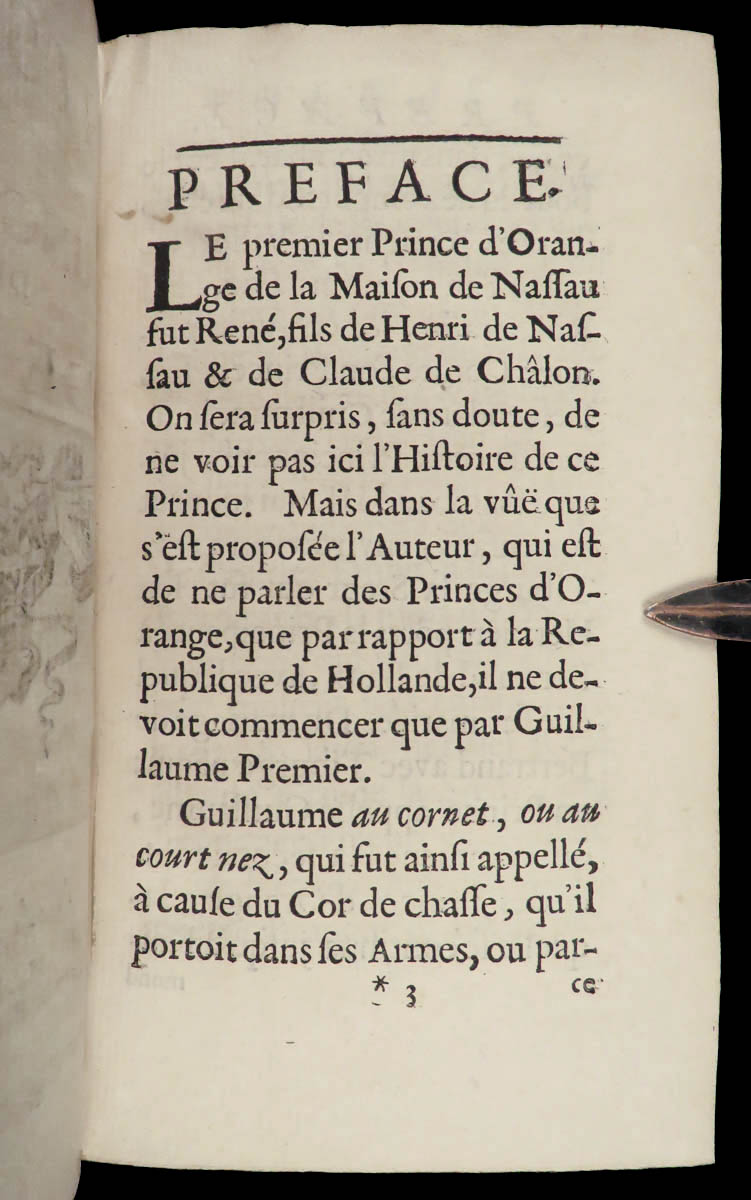 PREFACE.
LE premier Prince d'Oran-
ge de la Maiſon de Naſſau
fut René, fils de Henri de Naſ-
ſau & de Claude de Châlon.
On ſera ſurpris, ſans doute, de
ne voir pas ici l'Hiſtoire de ce
Prince. Mais dans la vûë que
s'eſt propoſée l'Auteur, qui eſt
de ne parler des Princes d'O-
range, que par rapport à la Re-
publique de Hollande, il ne de-
voit commencer que par Guil-
laume Premier.
Guillaume au cornet, ou au
court nez, qui fut ainſi appellé,
à cauſe du Cor de chaſſe, qu'il
portoit dans ſes Armes, ou par-
* 3 ce